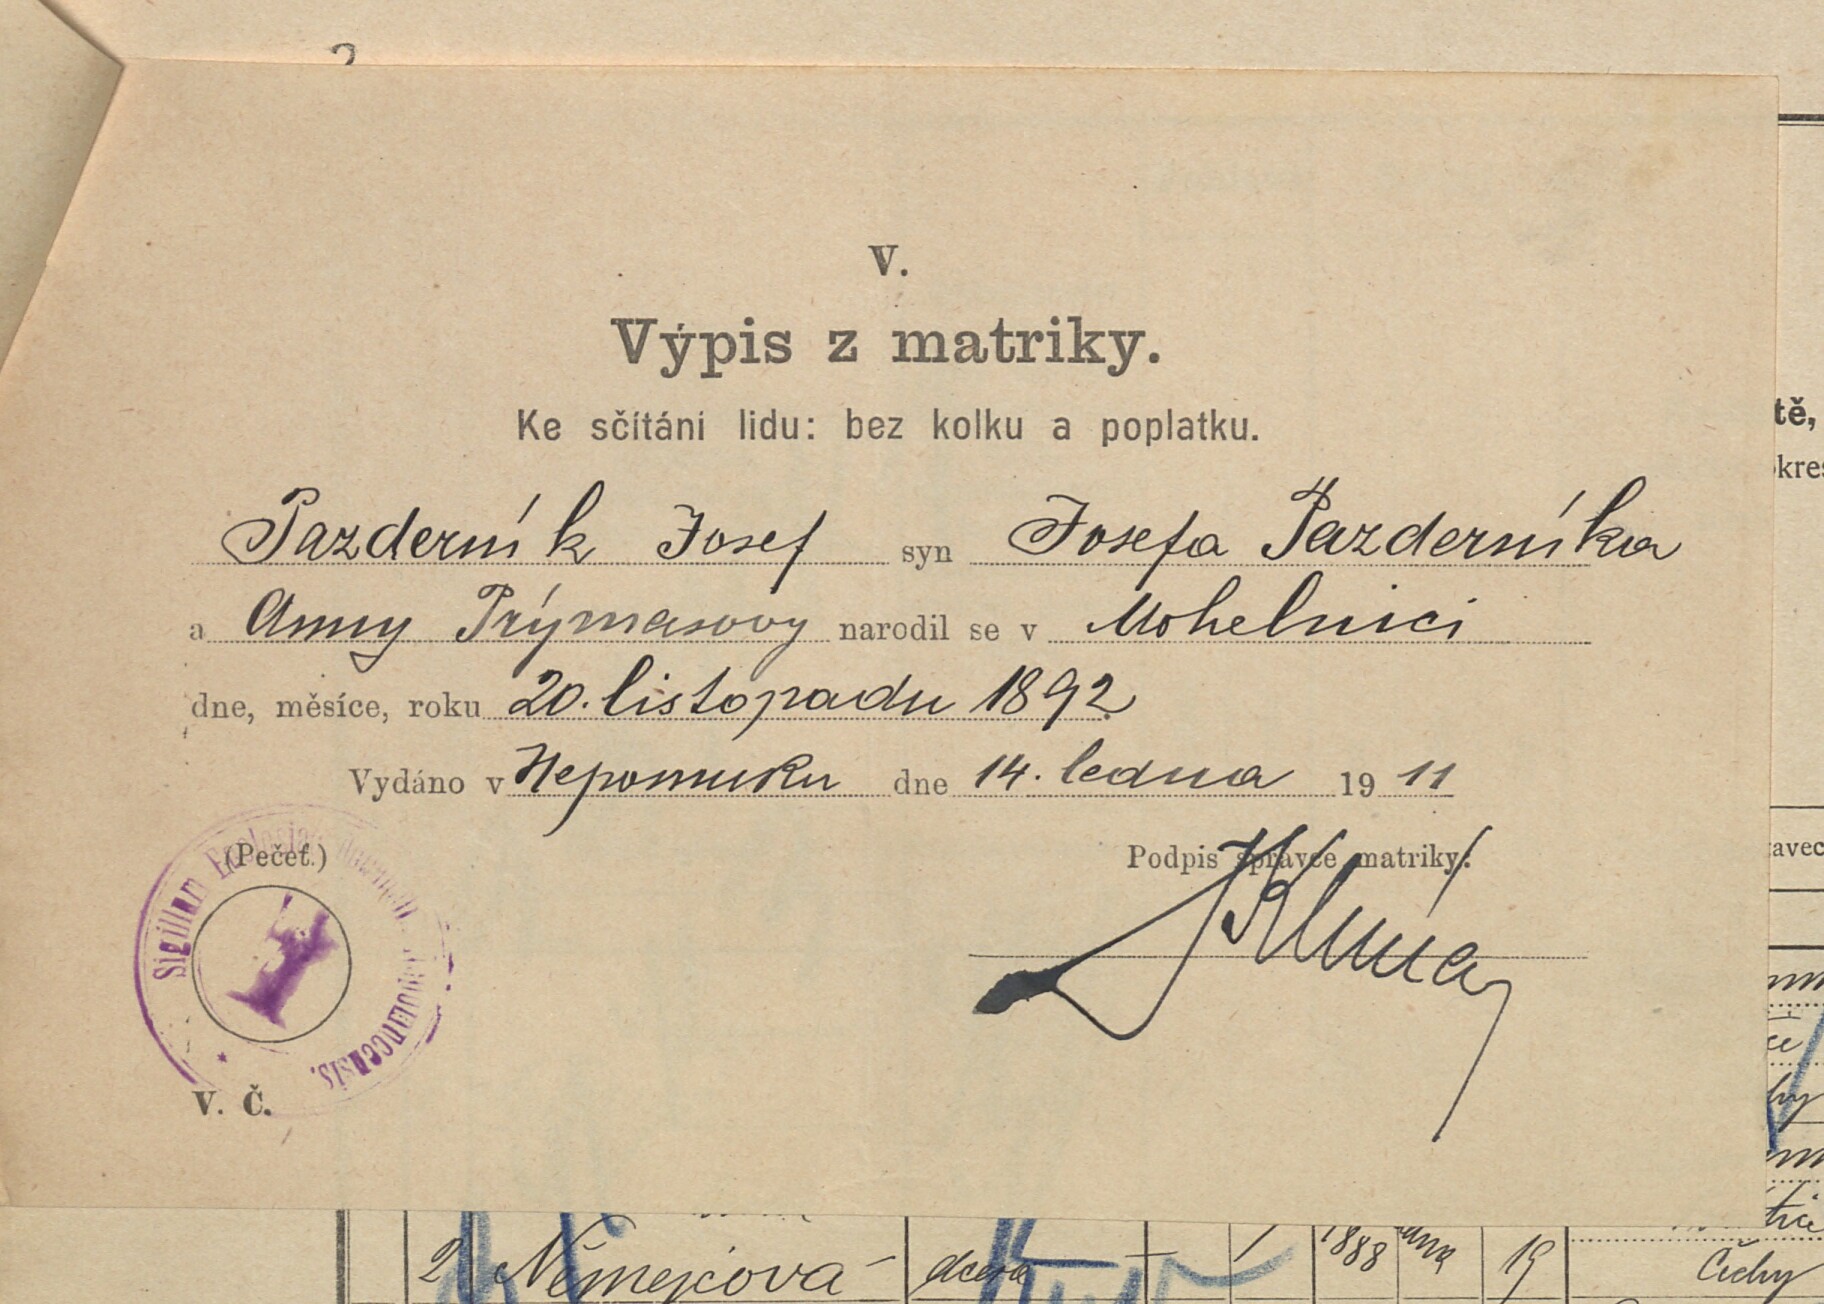 V.
Výpis z matriky.
Ke sčítání lidu: bez kolku a poplatku.
Pazderník Josef syn Josefa Pazderníka
a Anny Trýmasovy narodil se v Mohelnici
dne, měsíce, roku 20. listopadu 1892
Vydáno v Nepomuku dne 14. ledna 19 11
(Pečeť.)
Podpis správce matriky:
Sigillum Ecclesiae Nepomucensis.
V. Č.
tě,
okres
2 Němejcová dcera 1 1888 19 Čechy